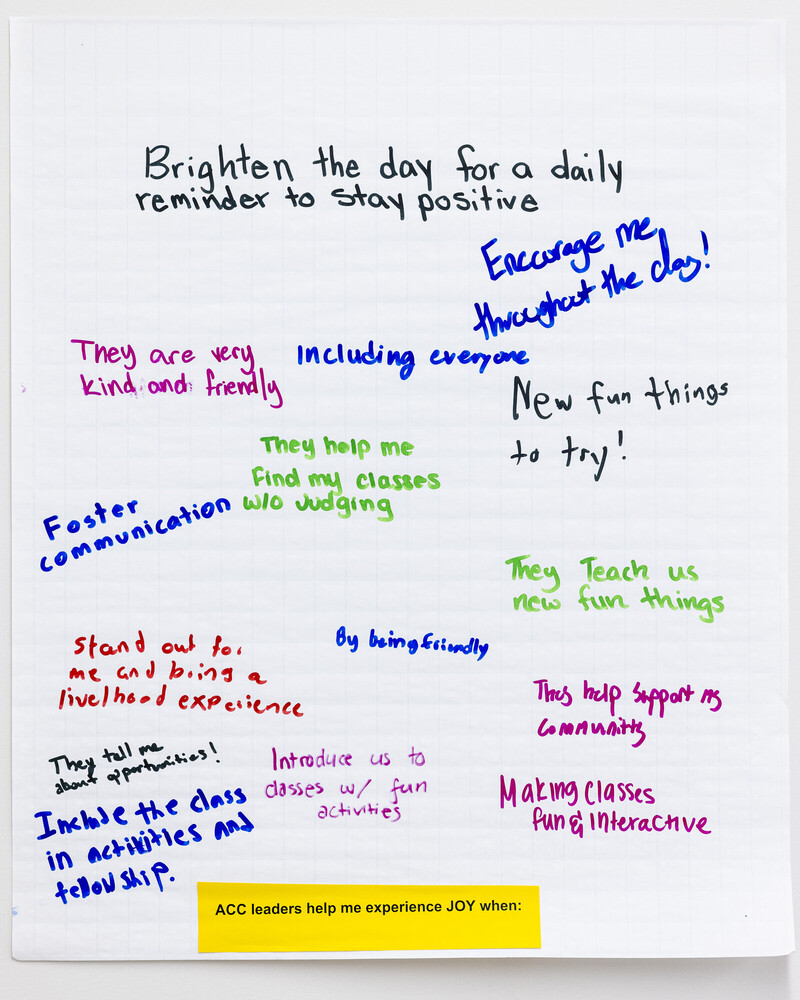 Brighten the day for a daily
reminder to stay positive
Encourage me
throughout the day!
They are very
kind and friendly
Including everyone
New fun things
to try!
They help me
Find my classes
w/o Judging
Foster
communication
They Teach us
new fun things
Stand out for
me and bring a
livelhood experience
By being friendly
They help support my
community
They tell me
about opportunities!
Introduce us to
classes w/ fun
activities
Making classes
fun & interactive
Include the class
in activities and
fellowship.
ACC leaders help me experience JOY when: